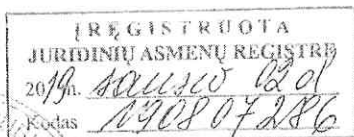 ĮREGISTRUOTA
JURIDINIŲ ASMENŲ REGISTRE
2019m. sausio 02 d
Kodas 190807286